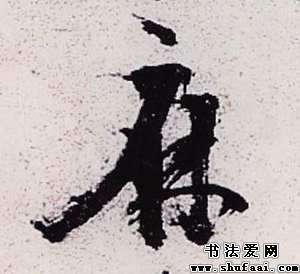 麻
书法爱网
www.shufaai.com